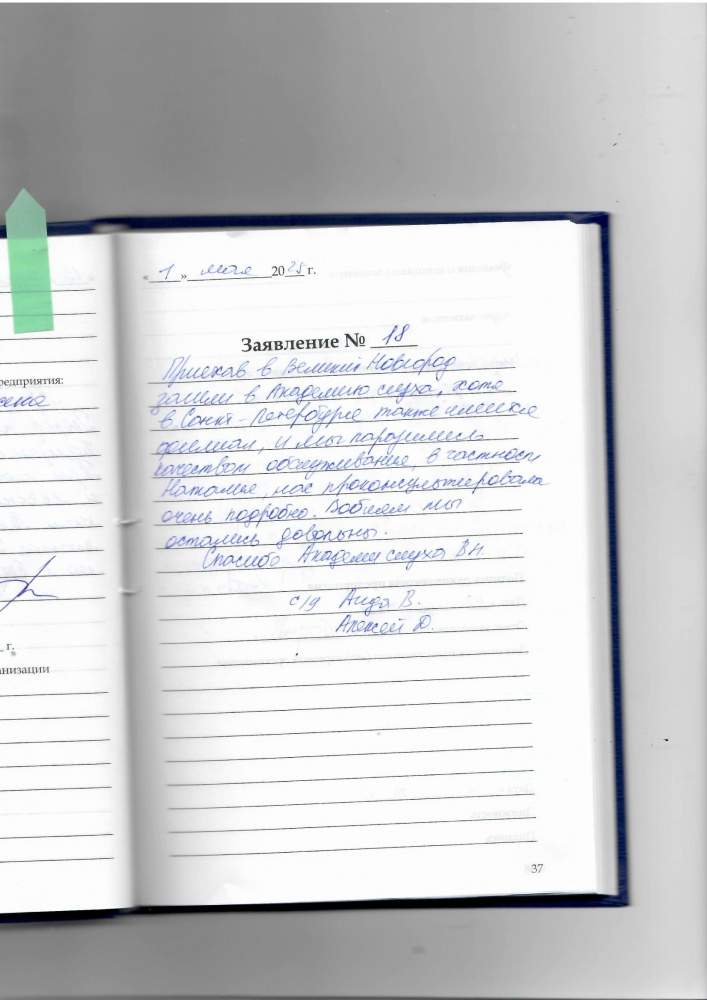 «1» мая 2025 г.
Заявление № 18
Приехав в Великий Новгород
зашли в Академию слуха, хотя
в Санкт-Петербурге также имеется
филиал, и мы поразились
качеством обслуживание, в частности
Наталье, нас проконсультировала
очень подробно. Вобщем мы
остались довольны.
Спасибо Академи слуха ВН.
с/у Аида В.
Алексей Д.
редприятия:
г.
анизации
37